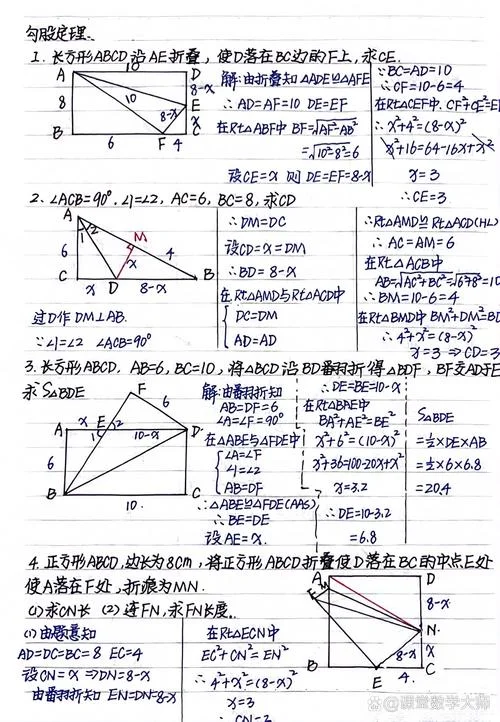 勾股定理.
1. 长方形ABCD沿AE折叠, 使D落在BC边的F上, 求CE.
A 10 D
8-x
8 10 E
8-x x
B 6 F 4 C
解: 由折叠知△ADE≌△AFE
∴ AD=AF=10 DE=EF
在Rt△ABF中 BF=√AF²-AB²
=√10²-8²=6
设CE=x 则 DE=EF=8-x
∵BC=AD=10
∴CF=10-6=4
在Rt△CEF中, CF²+CE²=E
∴ x²+4²=(8-x)²
x²+16=64-16x+x²
x=3
∴CE=3
2. ∠ACB=90°, ∠1=∠2, AC=6, BC=8, 求CD
A
1 2 M
6 x 4
C x D 8-x B
过D作DM⊥AB.
∵∠1=∠2 ∠ACB=90°
∴DM=DC
设CD=x=DM
∴BD=8-x
在Rt△AMD与Rt△ACD中
DC=DM
AD=AD
∴Rt△AMD≌Rt△ACD(HL)
∴ AC=AM=6
在Rt△ACB中
AB=√AC²+BC²=√6²+8²=10
∴BM=10-6=4
在Rt△BMD中 BM²+DM²=BD
∴4²+x²=(8-x)²
x=3 ⇒CD=3
3. 长方形ABCD, AB=6, BC=10, 将△BCD沿BD翻折得△BDF, BF交AD于E
求S△BDE
F
6
A x E 2 10-x D
1
6
B 10. C
解: 由翻折知
AB=DF=6
∠A=∠F=90°
在△ABE与△FDE中
∠A=∠F
∠1=∠2
AB=DF
∴△ABE≌△FDE(AAS)
∴BE=DE
设AE=x.
∴DE=BE=10-x
在Rt△BAE中
BA²+AE²=BE²
x²+6²=(10-x)²
x²+36=100-20x+x²
x=3.2
∴DE=10-3.2
=6.8
S△BDE
=½×DE×AB
=½×6×6.8
=20.4
4. 正方形ABCD, 边长为8cm, 将正方形ABCD折叠使D落在BC的中点E处
使A落在F处, 折痕为MN.
(1)求CN长 (2)连FN, 求FN长度.
(1)由题意知
AD=DC=BC=8 EC=4
设CN=x ⇒DN=8-x
由翻折知 EN=DN=8-x
在Rt△ECN中
EC²+CN²=EN²
∴4²+x²=(8-x)²
x=3
∴CN=3
A D
F M
8-x
N
8-x x
B E 4. C
@课堂数学大师